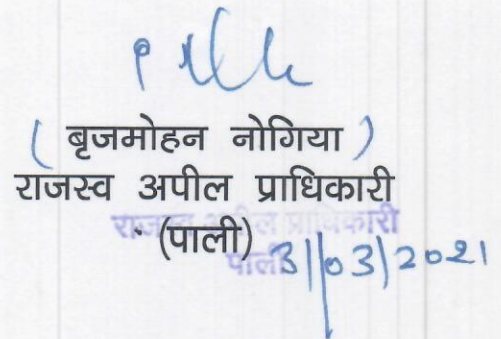 ( बृजमोहन नोगिया )
राजस्व अपील प्राधिकारी
राजस्व अपील प्राधिकारी
(पाली)
पाली
31/03/2021